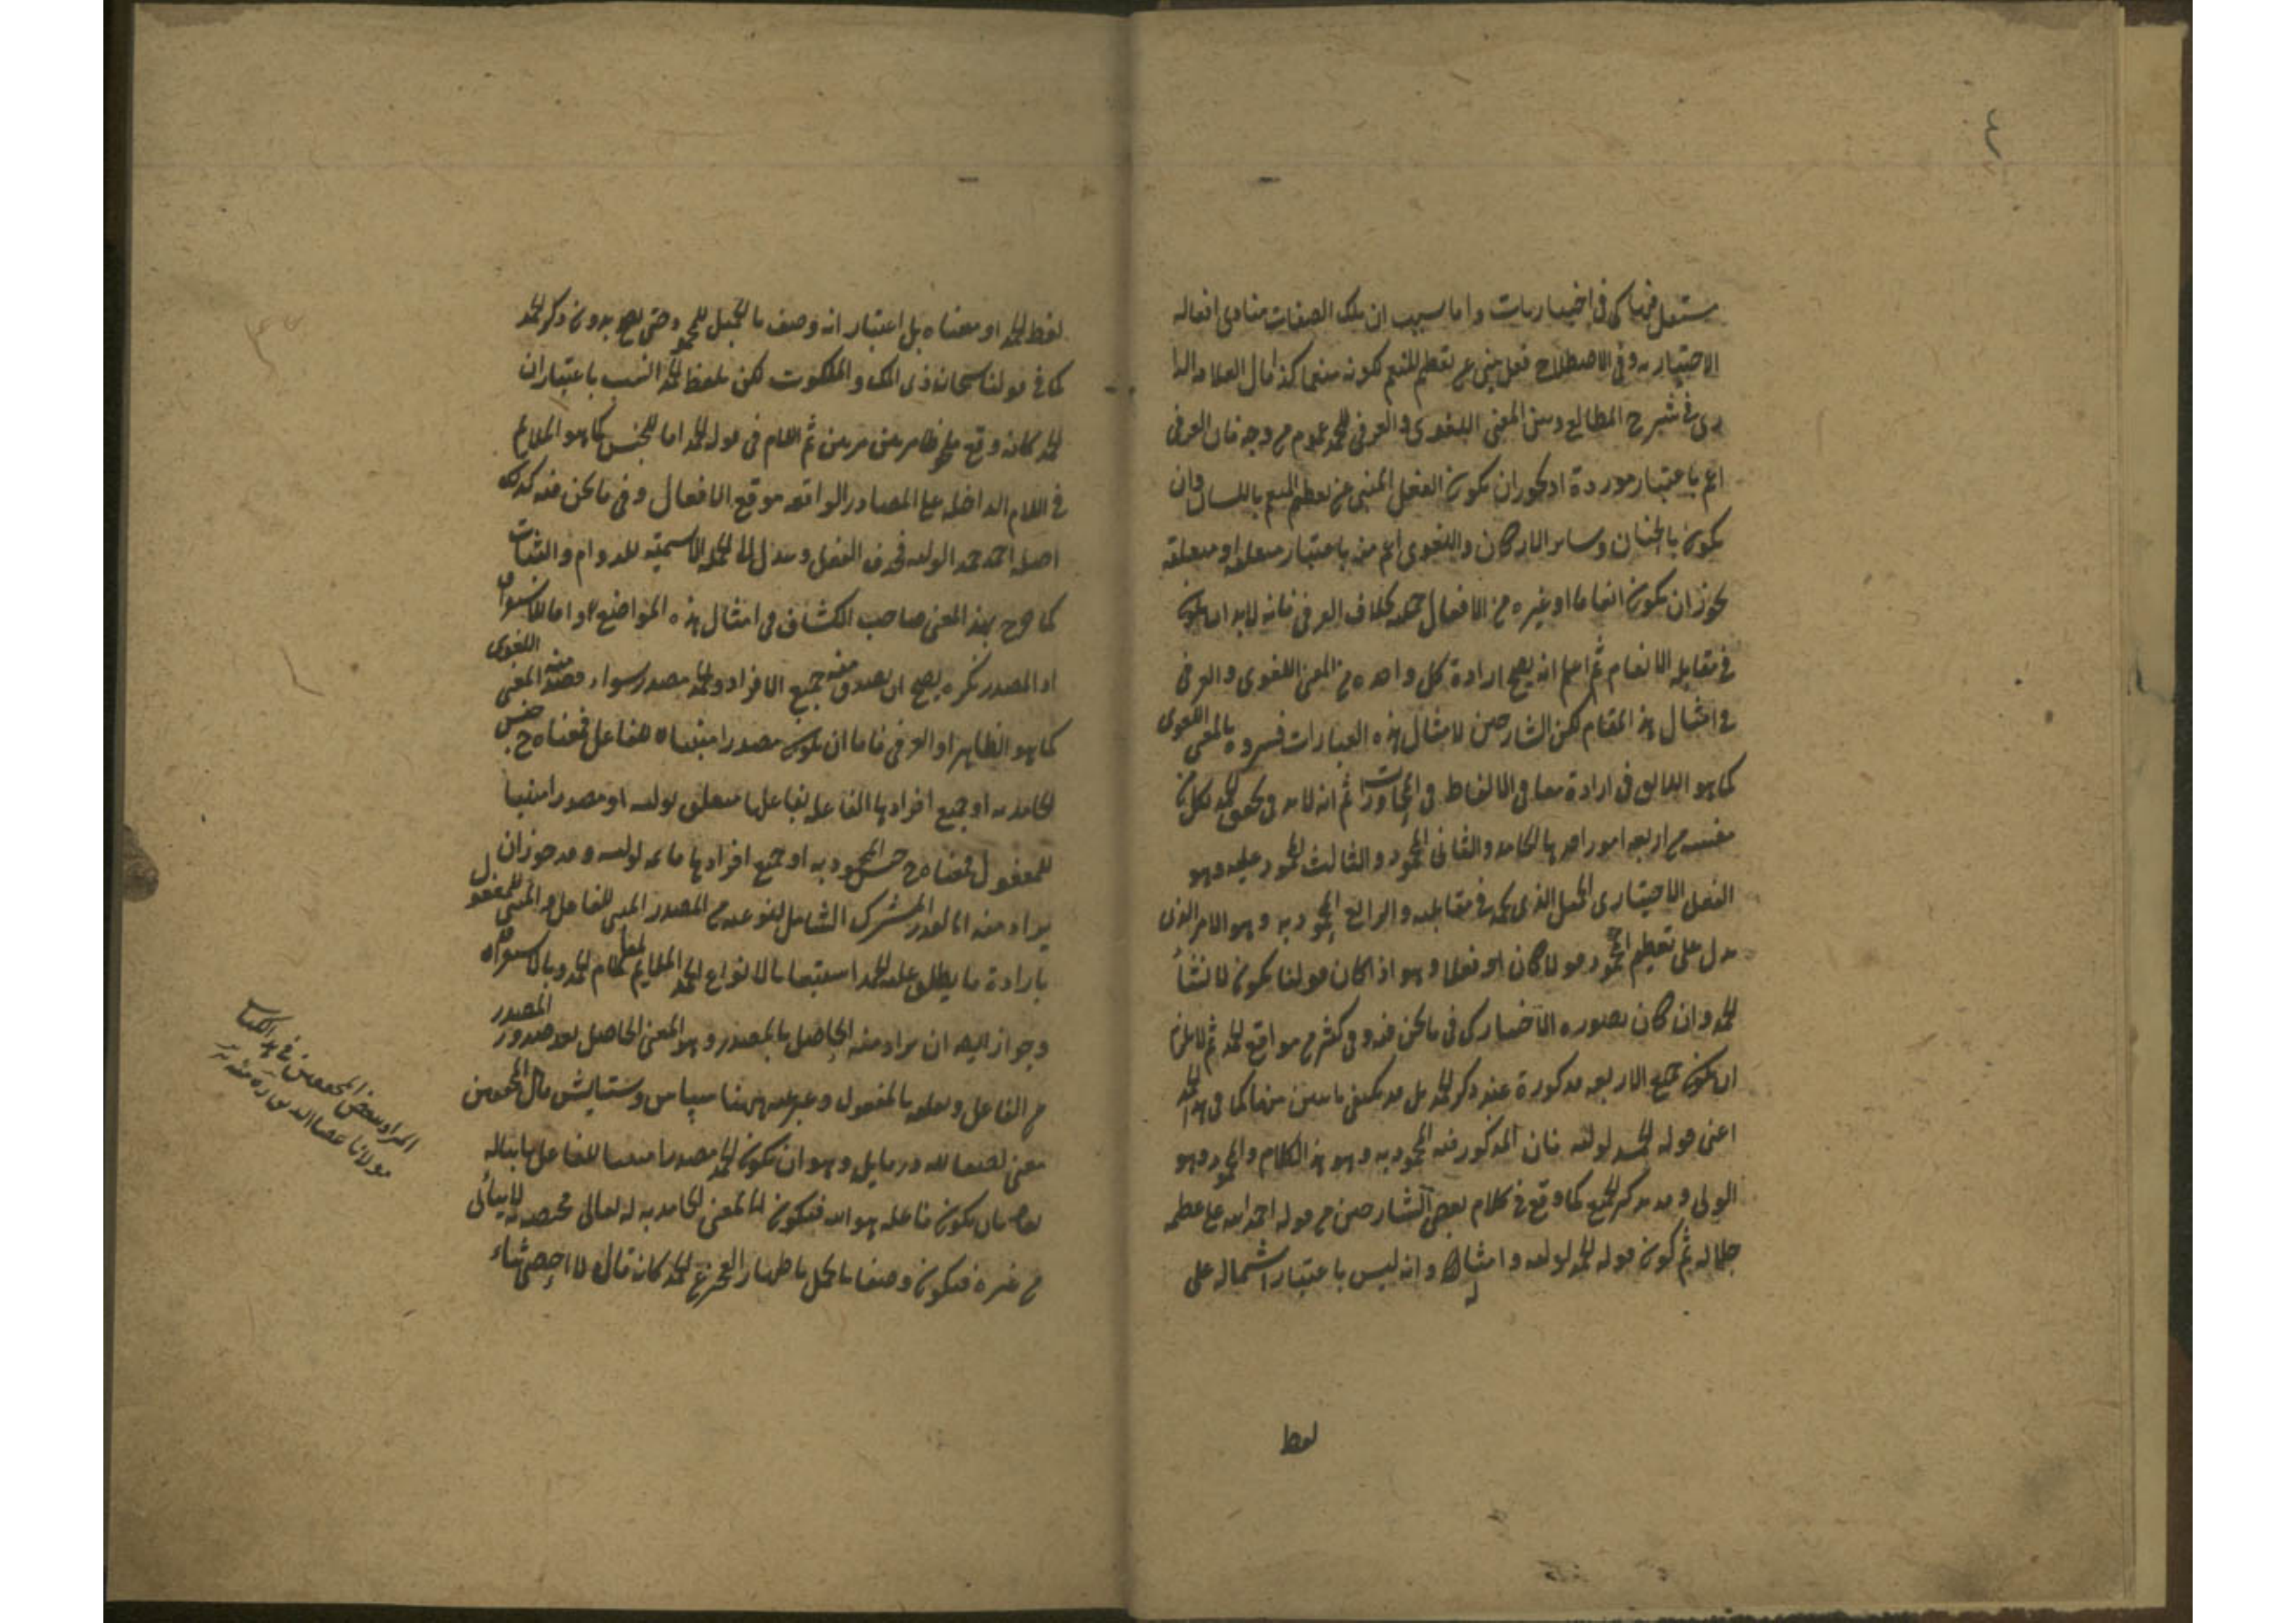 ٤
يستعمل فيها كما في اختياريات واما بسبب ان تلك الصفات مبادى افعاله
الاختياريه وفي الاصطلاح فعل ينبى عن تعظيم المنعم لكونه منعما كذا قال العلامه الرا
زى في شرح المطالع وبين المعنى اللغوى والعرفى للحمد عموم من وجه فان العرفى
اعم باعتبار مورده اذ يجوز ان يكون الفعل المنبى عن تعظيم المنعم باللسان وان
يكون بالجنان وساير الاركان واللغوى اعم من باعتبار متعلقه اذ متعلقه
يجوز ان يكون انعاما او غيره من الافعال بخلاف العرفى فانه لابد ان يكون
في مقابله الانعام ثم اعلم انه يصح ارادة كل واحد من المعنى اللغوى والعرفى
في امثال هذا المقام لكن الشارحين لامثال هذه العبارات فسروه بالمعنى اللغوى
كما هو اللايق في ارادة معانى الالفاظ في المحاورات ثم انه لابد في تحقق الحمد بكل من
معنييه من اربعه امور احدها الحامد والثانى المحمود والثالث المحمود عليه وهو
الفعل الاختيارى الجميل الذى يحمد في مقابلته والرابع المحمود به وهو الامر الذى
يدل على تعظيم المحمود قولا كان او فعلا وهو اذا كان قولنا يكون لانشأ
الحمد وان كان بصورة الاخبار كما في ما نحن فيه وفى كثير من مواقع الحمد ثم لا يلزم
ان يكون جميع الاربعه مذكورة عند ذكر الحمد بل قد يكتفى باثنين منها كما في هذا الحمد
اعنى قوله الحمد لوليه فان المذكور فيه المحمود به وهو هذا الكلام والمحمود وهو
الولى وقد يذكر الجميع كما وقع في كلام بعض الشارحين من قوله احمد الله على عظمه
جلاله ثم كون قوله الحمد لوليه وامثاله وانه ليس باعتبار اشتماله على
لفظ
لفظ الحمد او معناه بل اعتبار انه وصف بالجميل للمحمود حتى يصح بدون ذكر الحمد
كما في قولنا سبحان ذى الملك والملكوت لكن بلفظ الحمد انسب باعتبار ان
الحمد كانه وقع مرتين ثم اللام في قوله الحمد اما للجنس كما هو الملايم
في اللام الداخله على المصادر الواقعه موقع الافعال وفى ما نحن فيه كذلك
اصله احمد حمدا لوليه فحذف الفعل وعدل الى الجمله الاسميه للدوام والثبات
كما صرح بهذا المعنى صاحب الكشاف في امثال هذه المواضع واما للاستغراق
اذ المصدر نكره يصح ان يصدق منه جميع الافراد والحمد مصدر سواء قصد منه المعنى اللغوى
كما هو الظاهر او العرفى فاما ان يكون مصدرا مبنيا للفاعل فمعناه ح جنس
الحامديه او جميع افرادها الفاعل بفاعلها متعلق لوليه او مصدرا مبنيا
للمفعول فمعناه ح جنس المحموديه او جميع افرادها قائمه لوليه وقد جوز ان
يراد منه القدر المشترك الشامل لنوعيه من المصدر المبنى للفاعل والمبنى للمفعول
بارادة ما يطلق عليه الحمد استيعابا لانواع الحمد الملايم لمقام الحمد وبالاستغراق
وجواز ايضا ان يراد منه الحاصل بالمصدر وهو المعنى الحاصل بعد صدور المصدر
من الفاعل وتعلقه بالمفعول وعبر عنه هنا سپاس وستايش قال المحققين
معنى لطيفا وهو ان يكون الحمد مصدرا مبنيا للفاعل
بان يكون فاعله هو الله فيكون المعنى الحامديه له تعالى مختصه لا يتأتى
من غيره فيكون وصفا بالجميل باظهار العجز عن الحمد كانه قال لا احصى ثناء
المراد ببعض المحققين في هذا الكتاب
مولانا عصام الدين